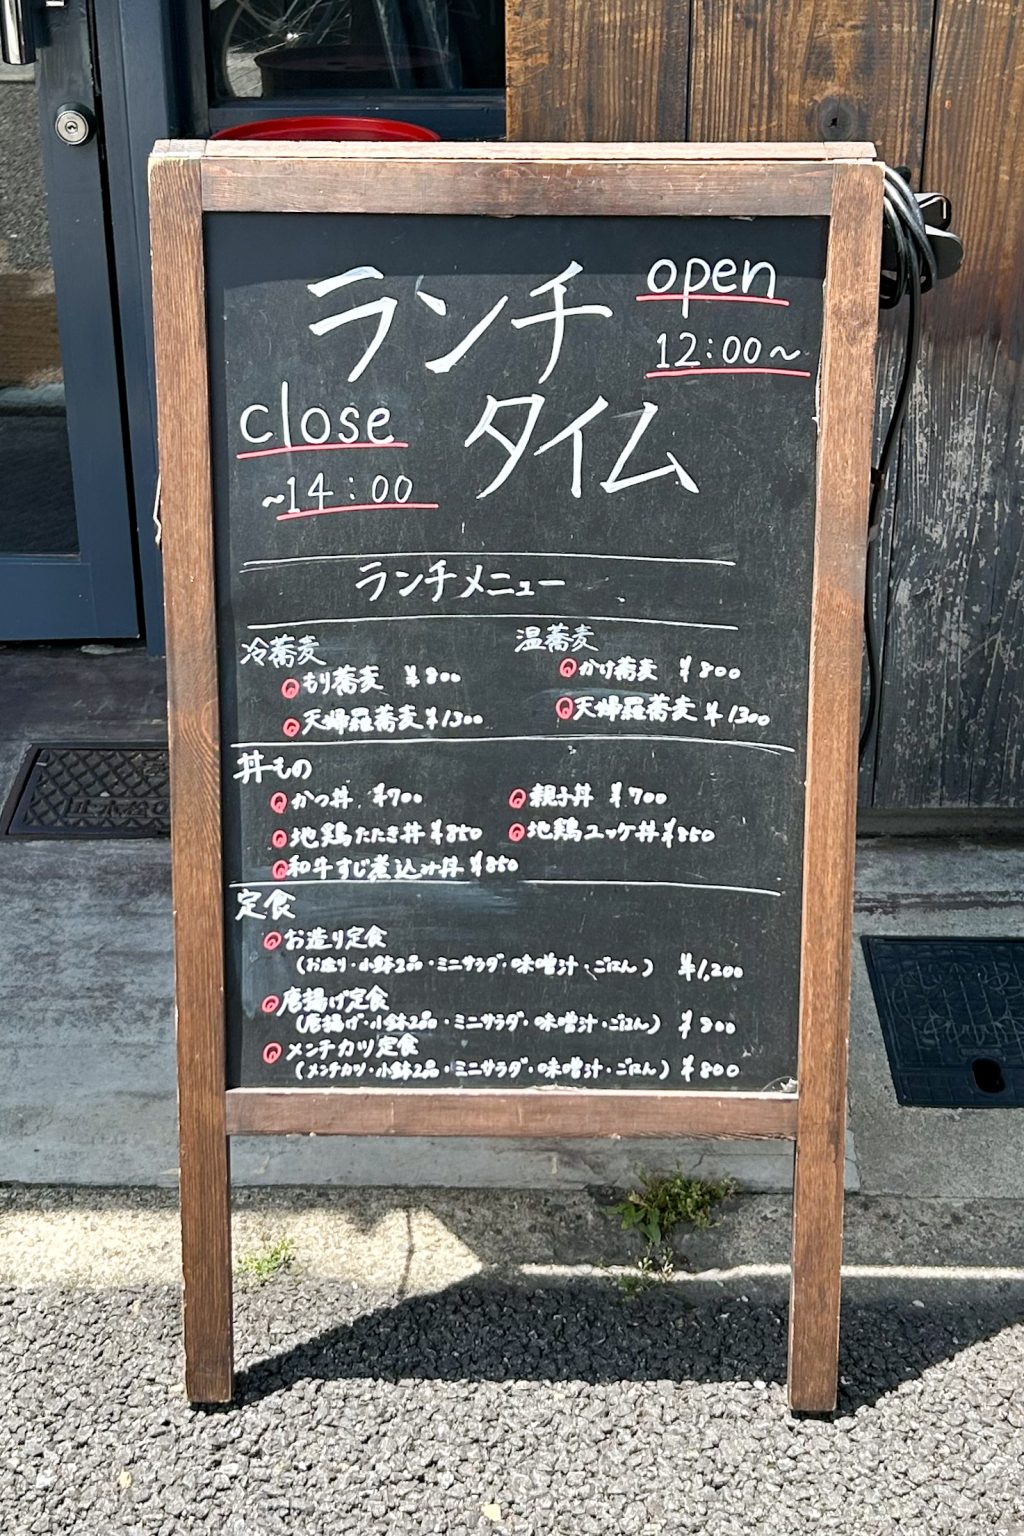 ランチ
open
12:00～
close
～14:00
タイム
ランチメニュー
冷蕎麦
もり蕎麦 ¥800
天婦羅蕎麦 ¥1300
温蕎麦
かけ蕎麦 ¥800
天婦羅蕎麦 ¥1300
丼もの
かつ丼 ¥700
親子丼 ¥700
地鶏たたき丼 ¥850
地鶏ユッケ丼 ¥850
和牛すじ煮込み丼 ¥850
定食
お造り定食
(お造り・小鉢2品・ミニサラダ・味噌汁・ごはん) ¥1,200
唐揚げ定食
(唐揚げ・小鉢2品・ミニサラダ・味噌汁・ごはん) ¥800
メンチカツ定食
(メンチカツ・小鉢2品・ミニサラダ・味噌汁・ごはん) ¥800